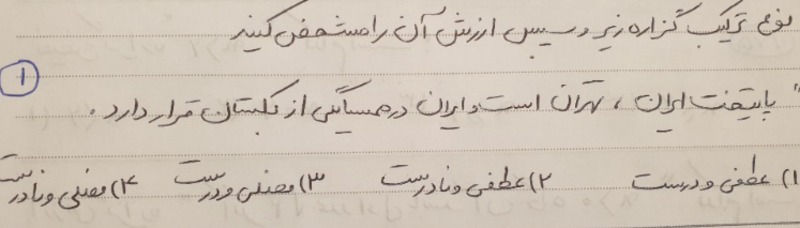 نوع ترکیب گزاره زیر و سپس ارزش آن را مشخص کنید
①
" پایتخت ایران ، تهران است و ایران در همسایگی ارمنستان قرار دارد .
۱) عطفی و درست ۲) عطفی و نادرست ۳) فصلی و درست ۴) فصلی و نادرست